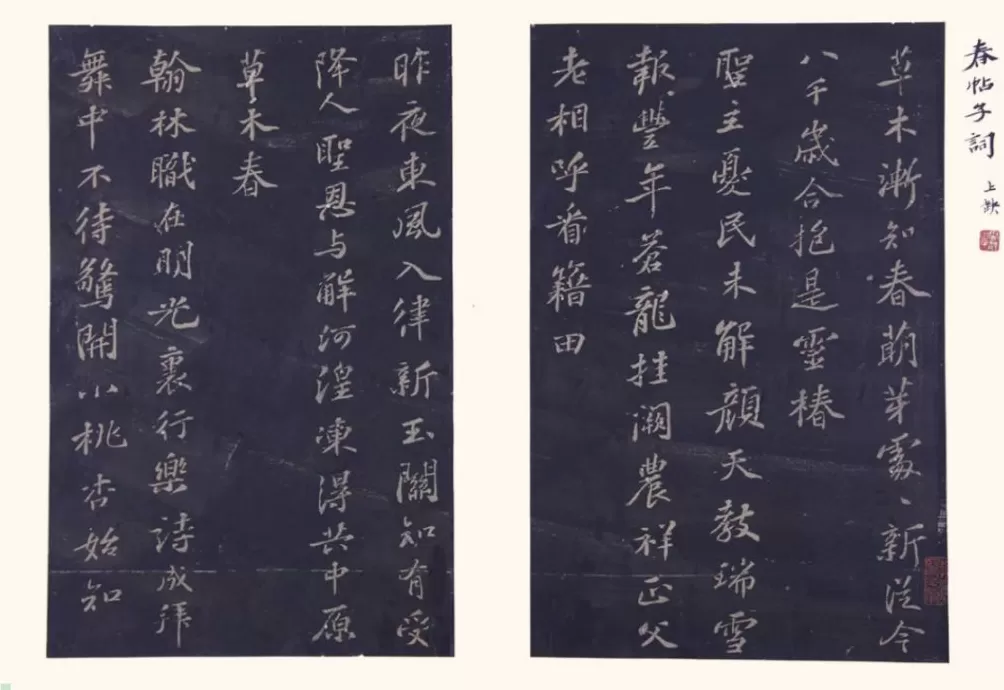 春帖子詞
上缺
草木漸知春萌芽處〻新從今
八千歲合抱是靈椿
聖主憂民未解顏天教瑞雪
報豐年蒼龍挂闕農祥正父
老相呼看籍田
昨夜東風入律新玉關知有受
降人聖恩与解河湟凍得共中原
草木春
翰林職在明光裏行樂詩成拜
舞中不待驚開小桃杏始知